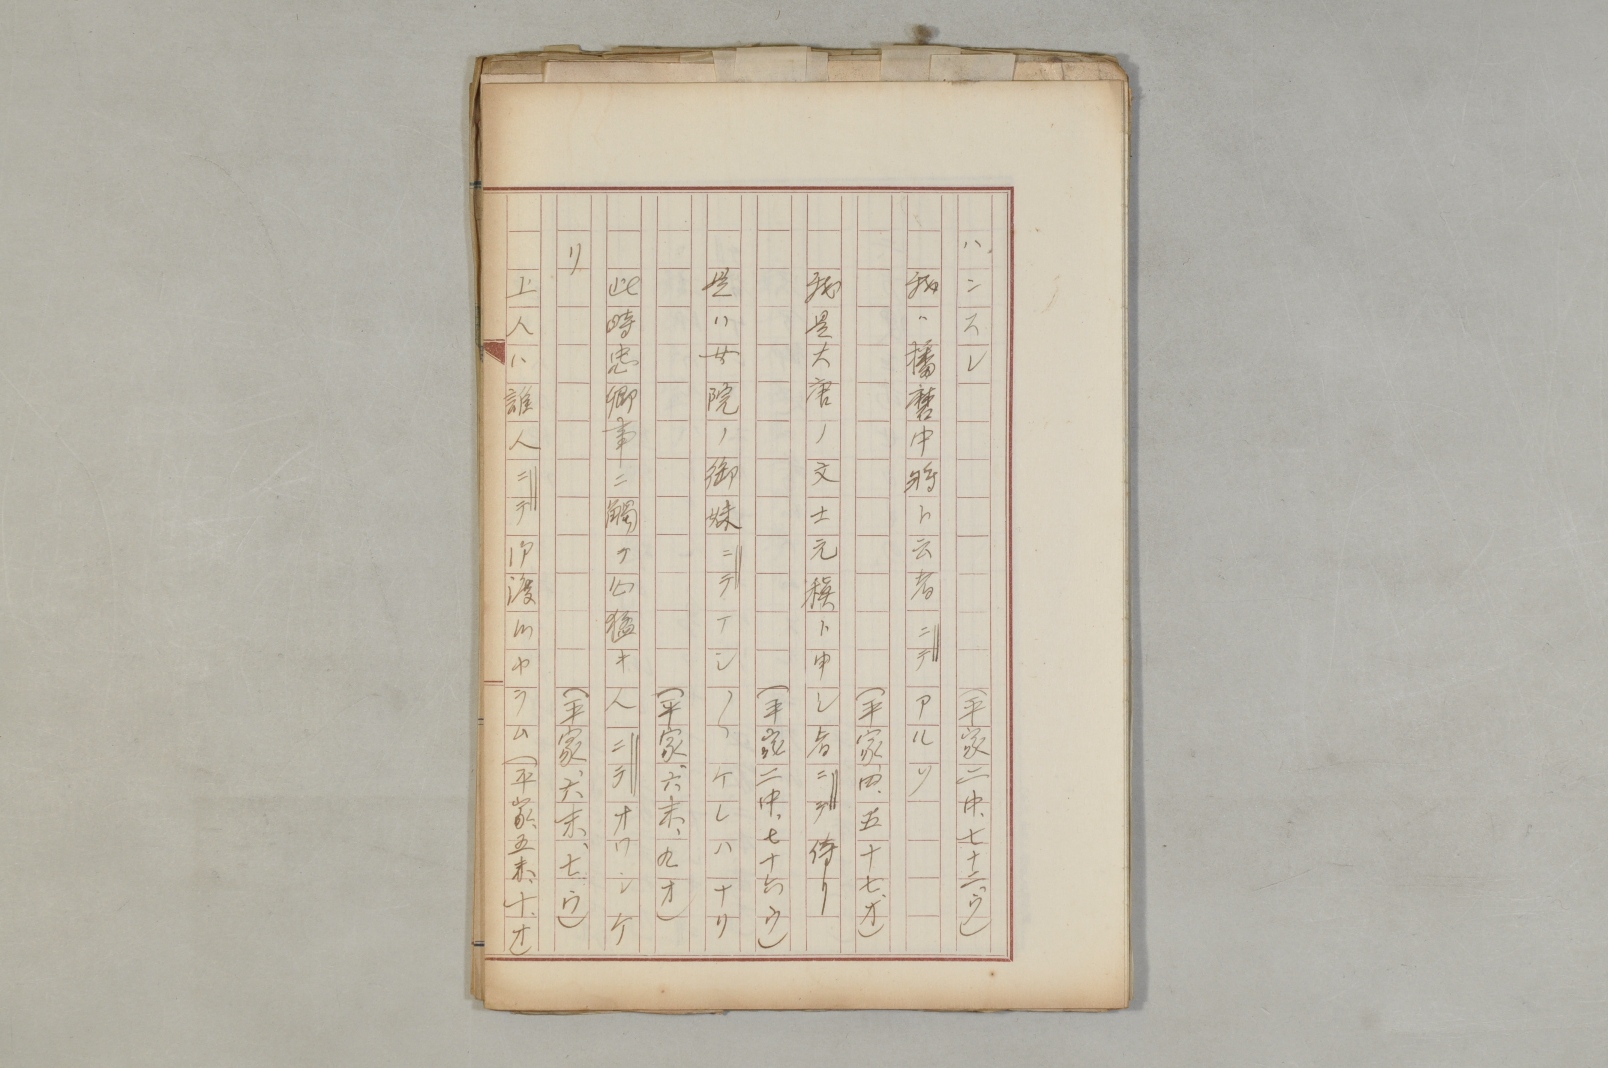 ハンスレ（平家、二中、七十二、ウ）
我ハ播磨中将ト云者ニテアルソ
（平家、四、五十七、オ）
我是大唐ノ文士元稹ト申シ者ニテ侍リ
（平家二中、七十六、ウ）
是ハ女院ノ御妹ニテイシ〳〵ケレハナリ
（平家、六、末、九オ）
此時忠卿事ニ觸テ心猛キ人ニテオワシケ
リ（平家、六、末、七、ウ）
上人ハ誰人ニテ御渡候ヤラム（平家、五末、十、オ）